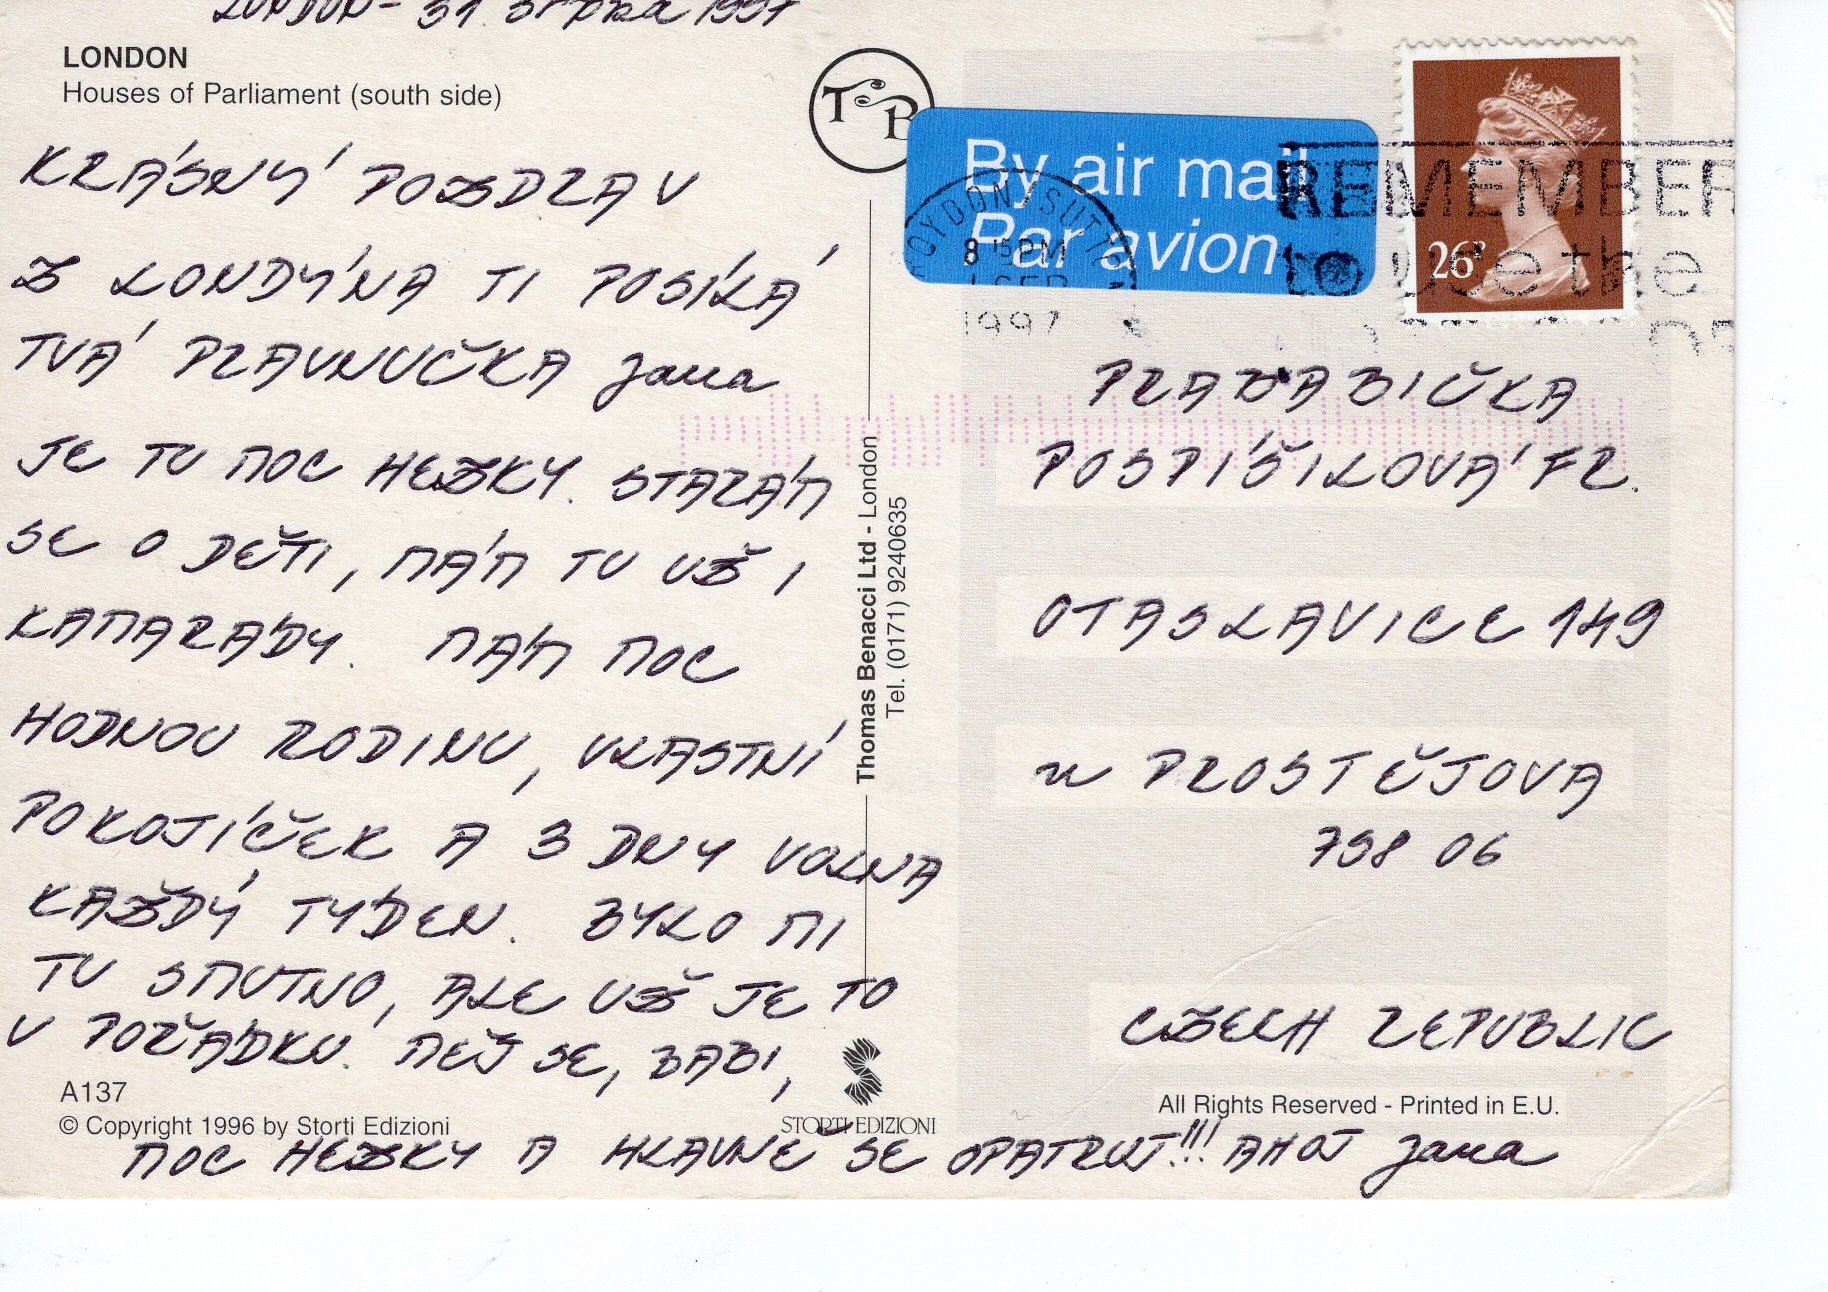 LONDON - 31. srpna 1997
LONDON
Houses of Parliament (south side)
KRÁSNÝ POZDRAV
Z LONDÝNA TI POSÍLÁ
TVÁ PRAVNUČKA Jana
JE TU MOC HEZKY. STARÁM
SE O DĚTI, MÁM TU UŽ I
KAMARÁDY. MÁM MOC
HODNOU RODINU, VLASTNÍ
POKOJÍČEK A 3 DNY VOLNA
KAŽDÝ TÝDEN. BYLO MI
TU SMUTNO, ALE UŽ JE TO
V POŘÁDKU. MĚJ SE, BABI,
A137
© Copyright 1996 by Storti Edizioni
MOC HEZKY A HLAVNĚ SE OPATRUJ!!! AHOJ Jana
TB
Thomas Benacci Ltd - London
Tel. (0171) 9240635
STORTI EDIZIONI
By air mail
Par avion
CROYDON SUTTON
8 15PM
1 SEP
1997
REMEMBER
to use the
26
PRABABIČKA
POSPÍŠILOVÁ FR.
OTASLAVICE 149
u PROSTĚJOVA
798 06
CZECH REPUBLIC
All Rights Reserved - Printed in E.U.